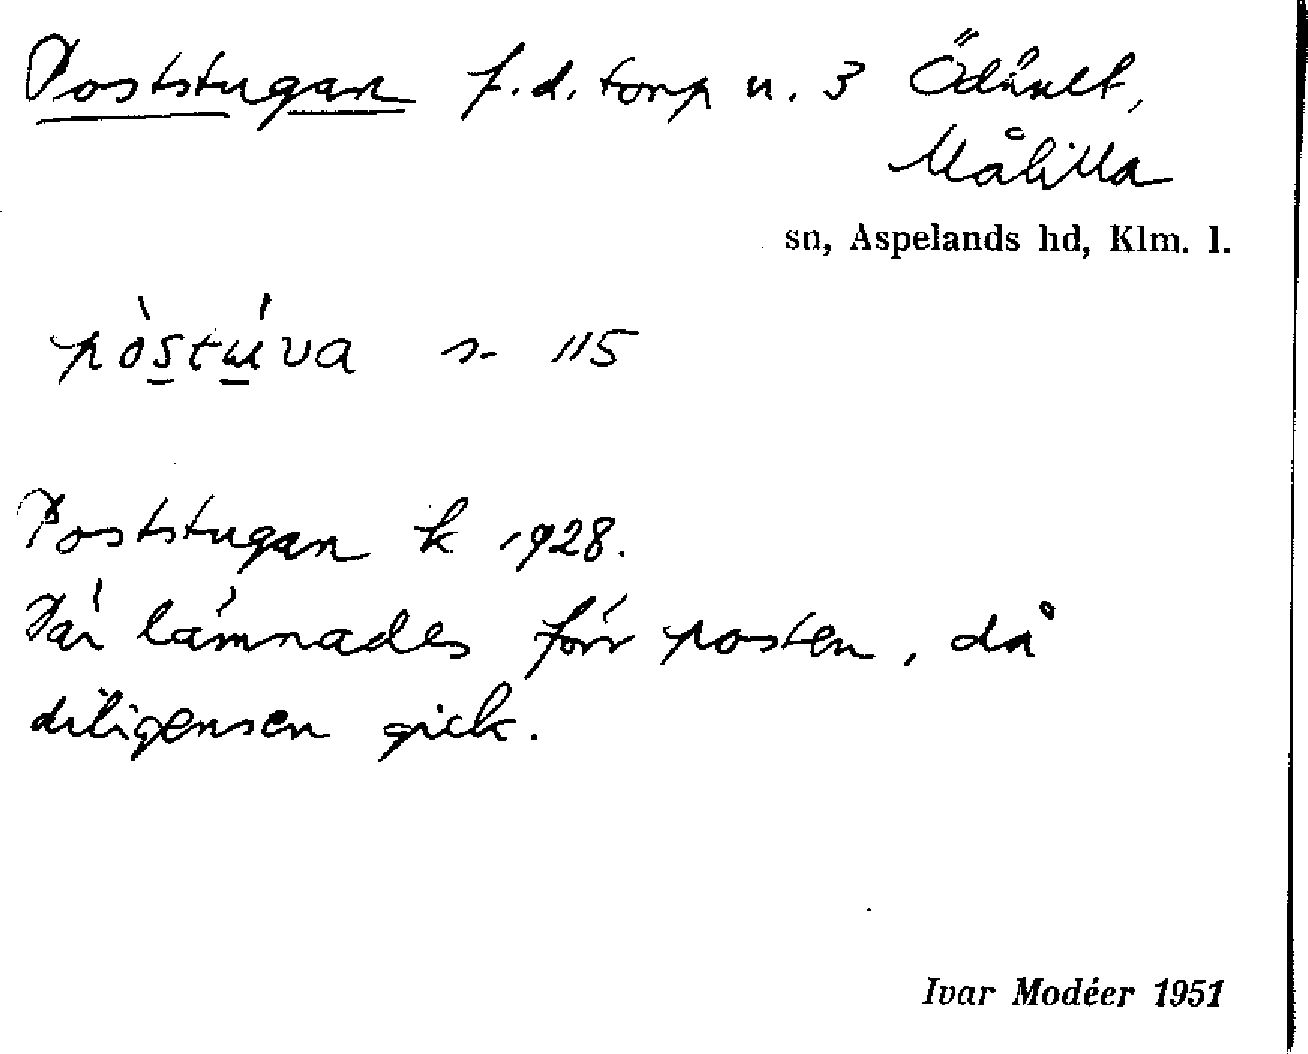 Poststugan f.d. torp u. 3 Ödhult,
Målilla
sn, Aspelands hd, Klm. l.
pòstúva s- 115
Poststugan k 1928.
Där lämnades förr posten, då
diligensen gick.
Ivar Modéer 1951